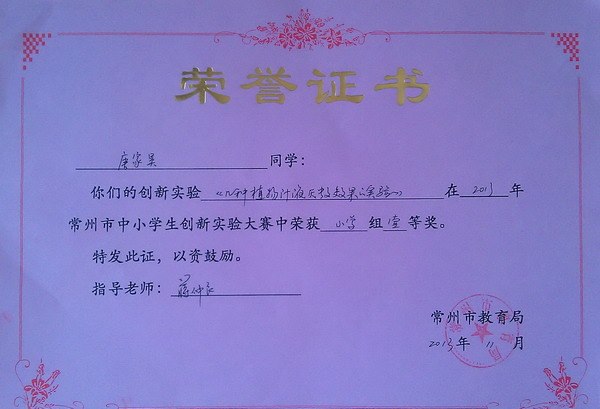 荣誉证书
唐家昊 同学：
你们的创新实验《几种植物汁液灭蚊效果实验》在 2013 年
常州市中小学生创新实验大赛中荣获 小学 组 壹 等奖。
特发此证，以资鼓励。
指导老师：蒋仲永
常州市教育局
2013年 11 月